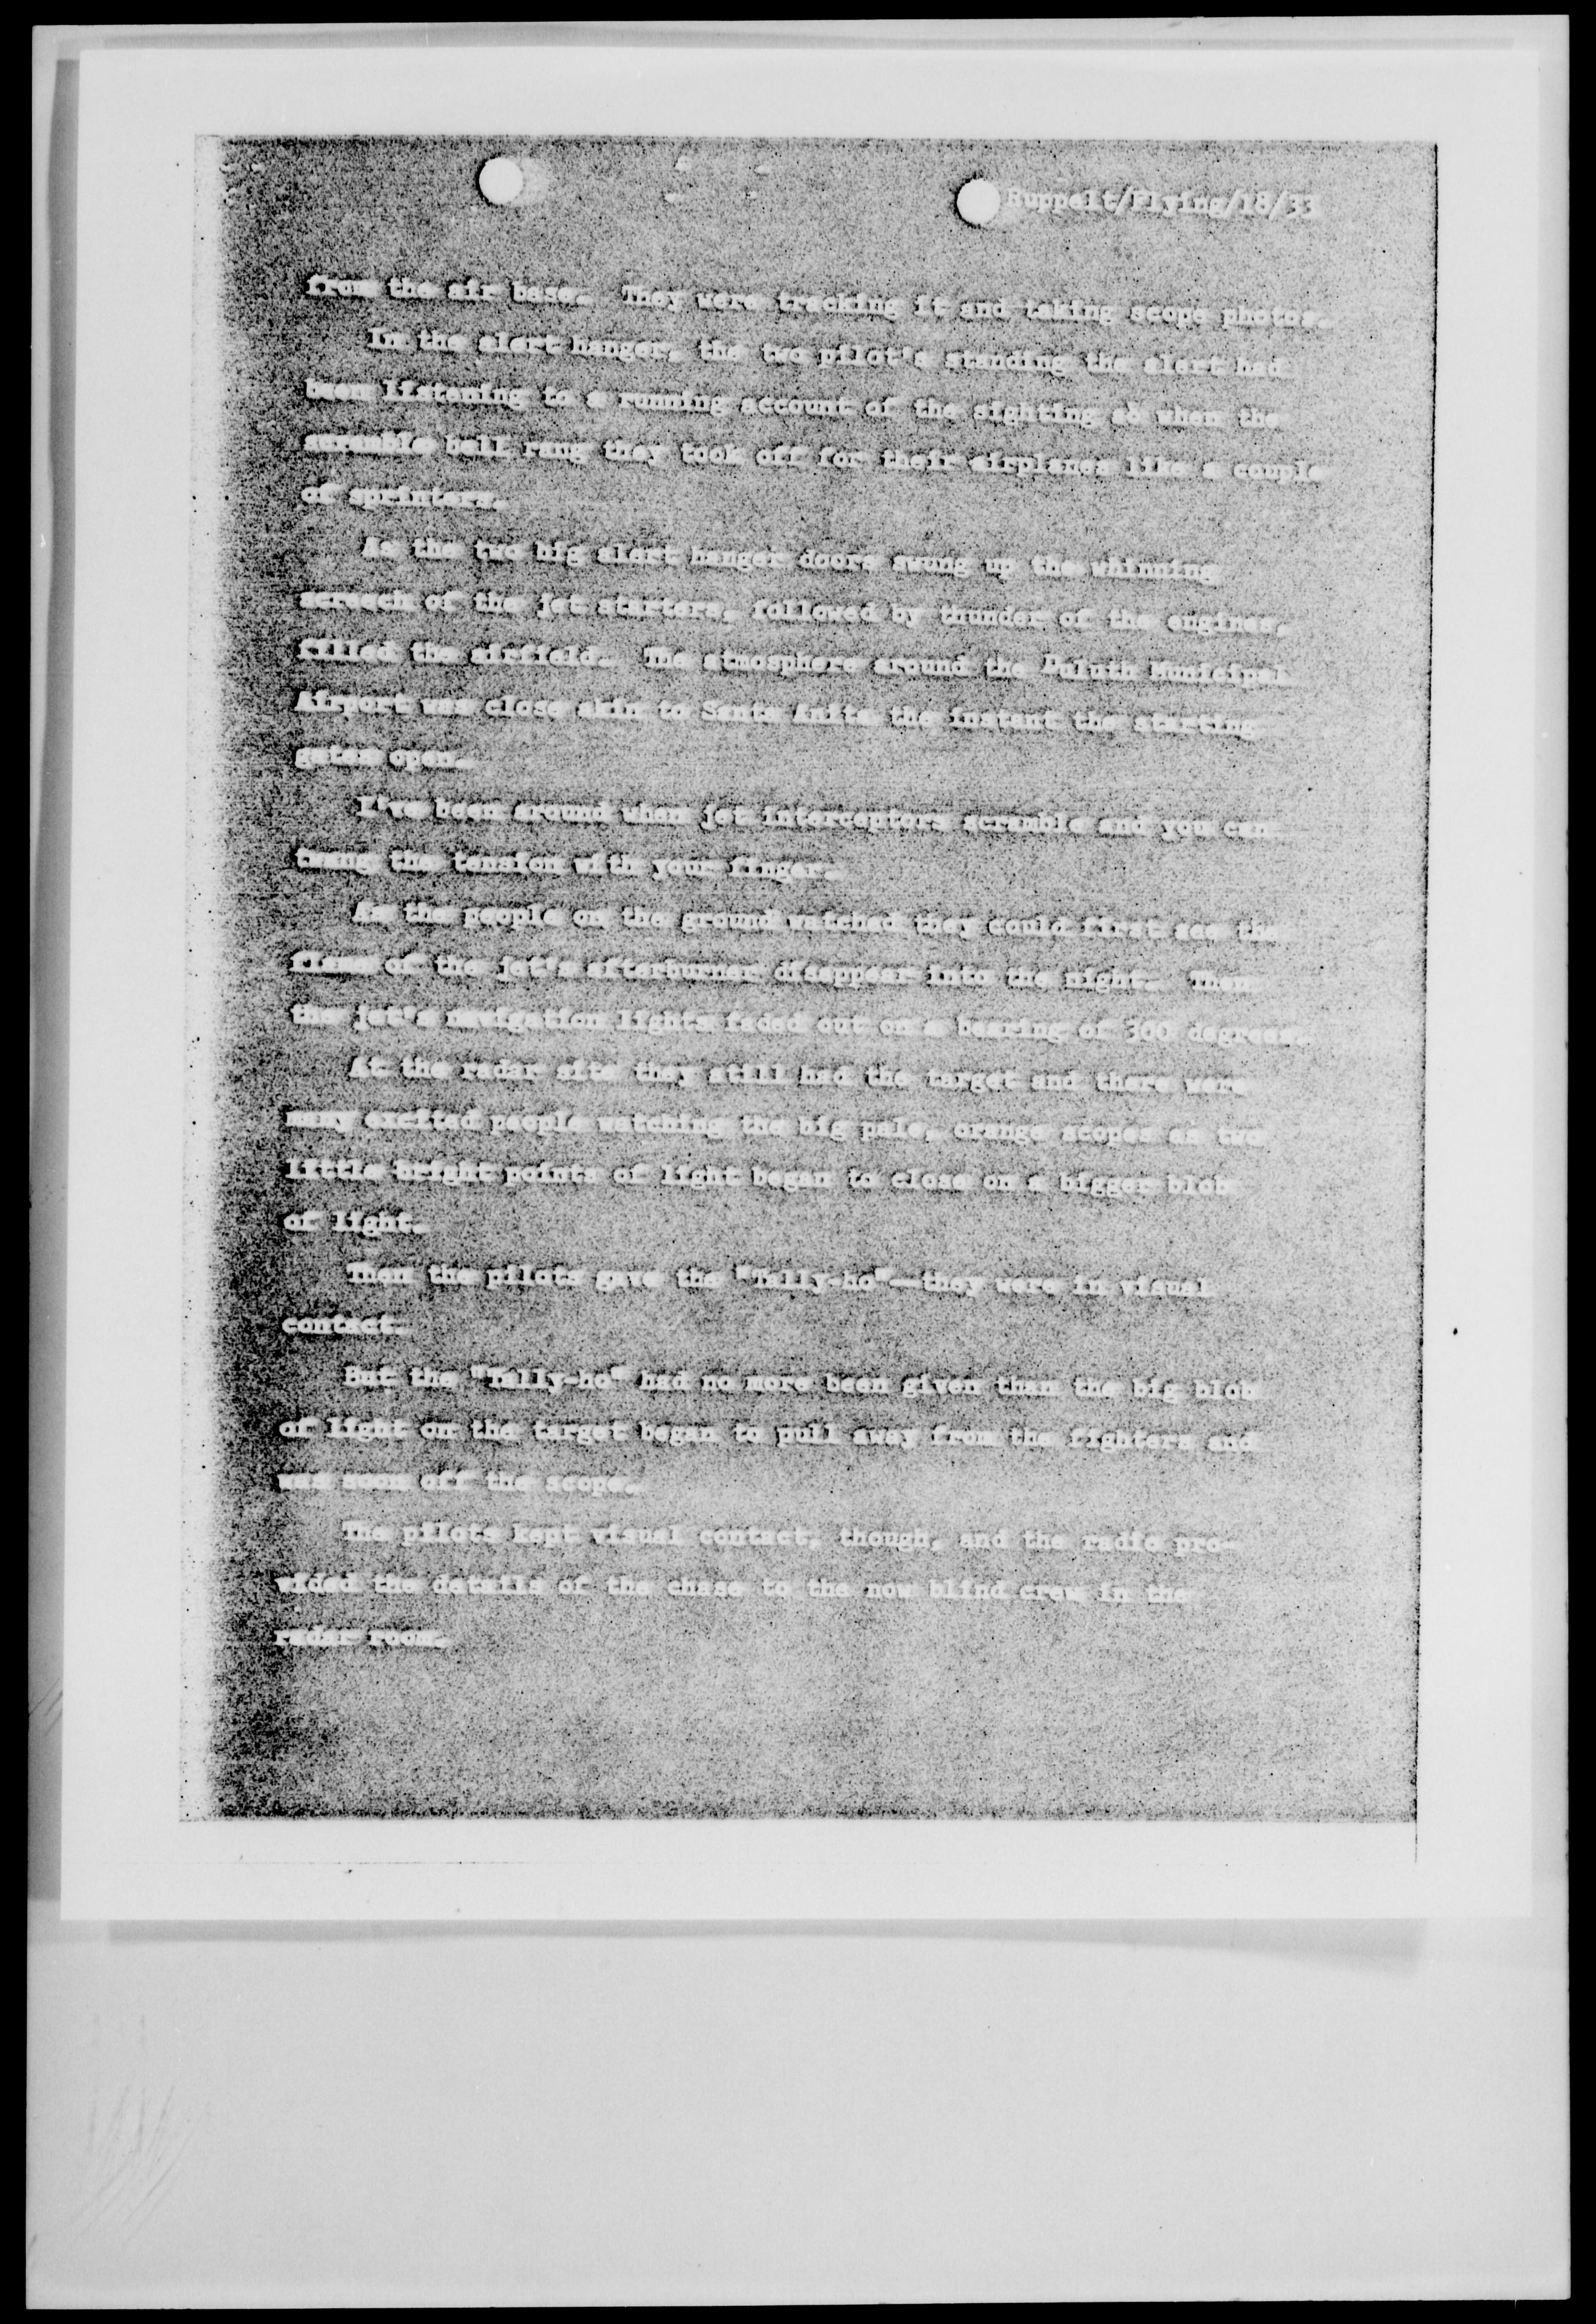 Ruppelt/Flying/18/33
from the air base. They were tracking it and taking scope photos.
In the alert hanger, the two pilot's standing the alert had
been listening to a running account of the sighting so when the
scramble bell rang they took off for their airplanes like a couple
of sprinters.
As the two big alert hanger doors swung up the whinning
screech of the jet starters, followed by thunder of the engines,
filled the airfield. The atmosphere around the Duluth Municipal
Airport was close akin to Santa Anita the instant the starting
gates open.
I've been around when jet interceptors scramble and you can
twang the tension with your finger.
As the people on the ground watched they could first see the
flame of the jet's afterburner disappear into the night. Then
the jet's navigation lights faded out on a bearing of 300 degrees.
At the radar site they still had the target and there were
many excited people watching the big pale, orange scopes as two
little bright points of light began to close on a bigger blob
of light.
Then the pilots gave the "Tally-ho"—they were in visual
contact.
But the "Tally-ho" had no more been given than the big blob
of light on the target began to pull away from the fighters and
was soon off the scope.
The pilots kept visual contact, though, and the radio pro-
vided the details of the chase to the now blind crew in the
radar room.